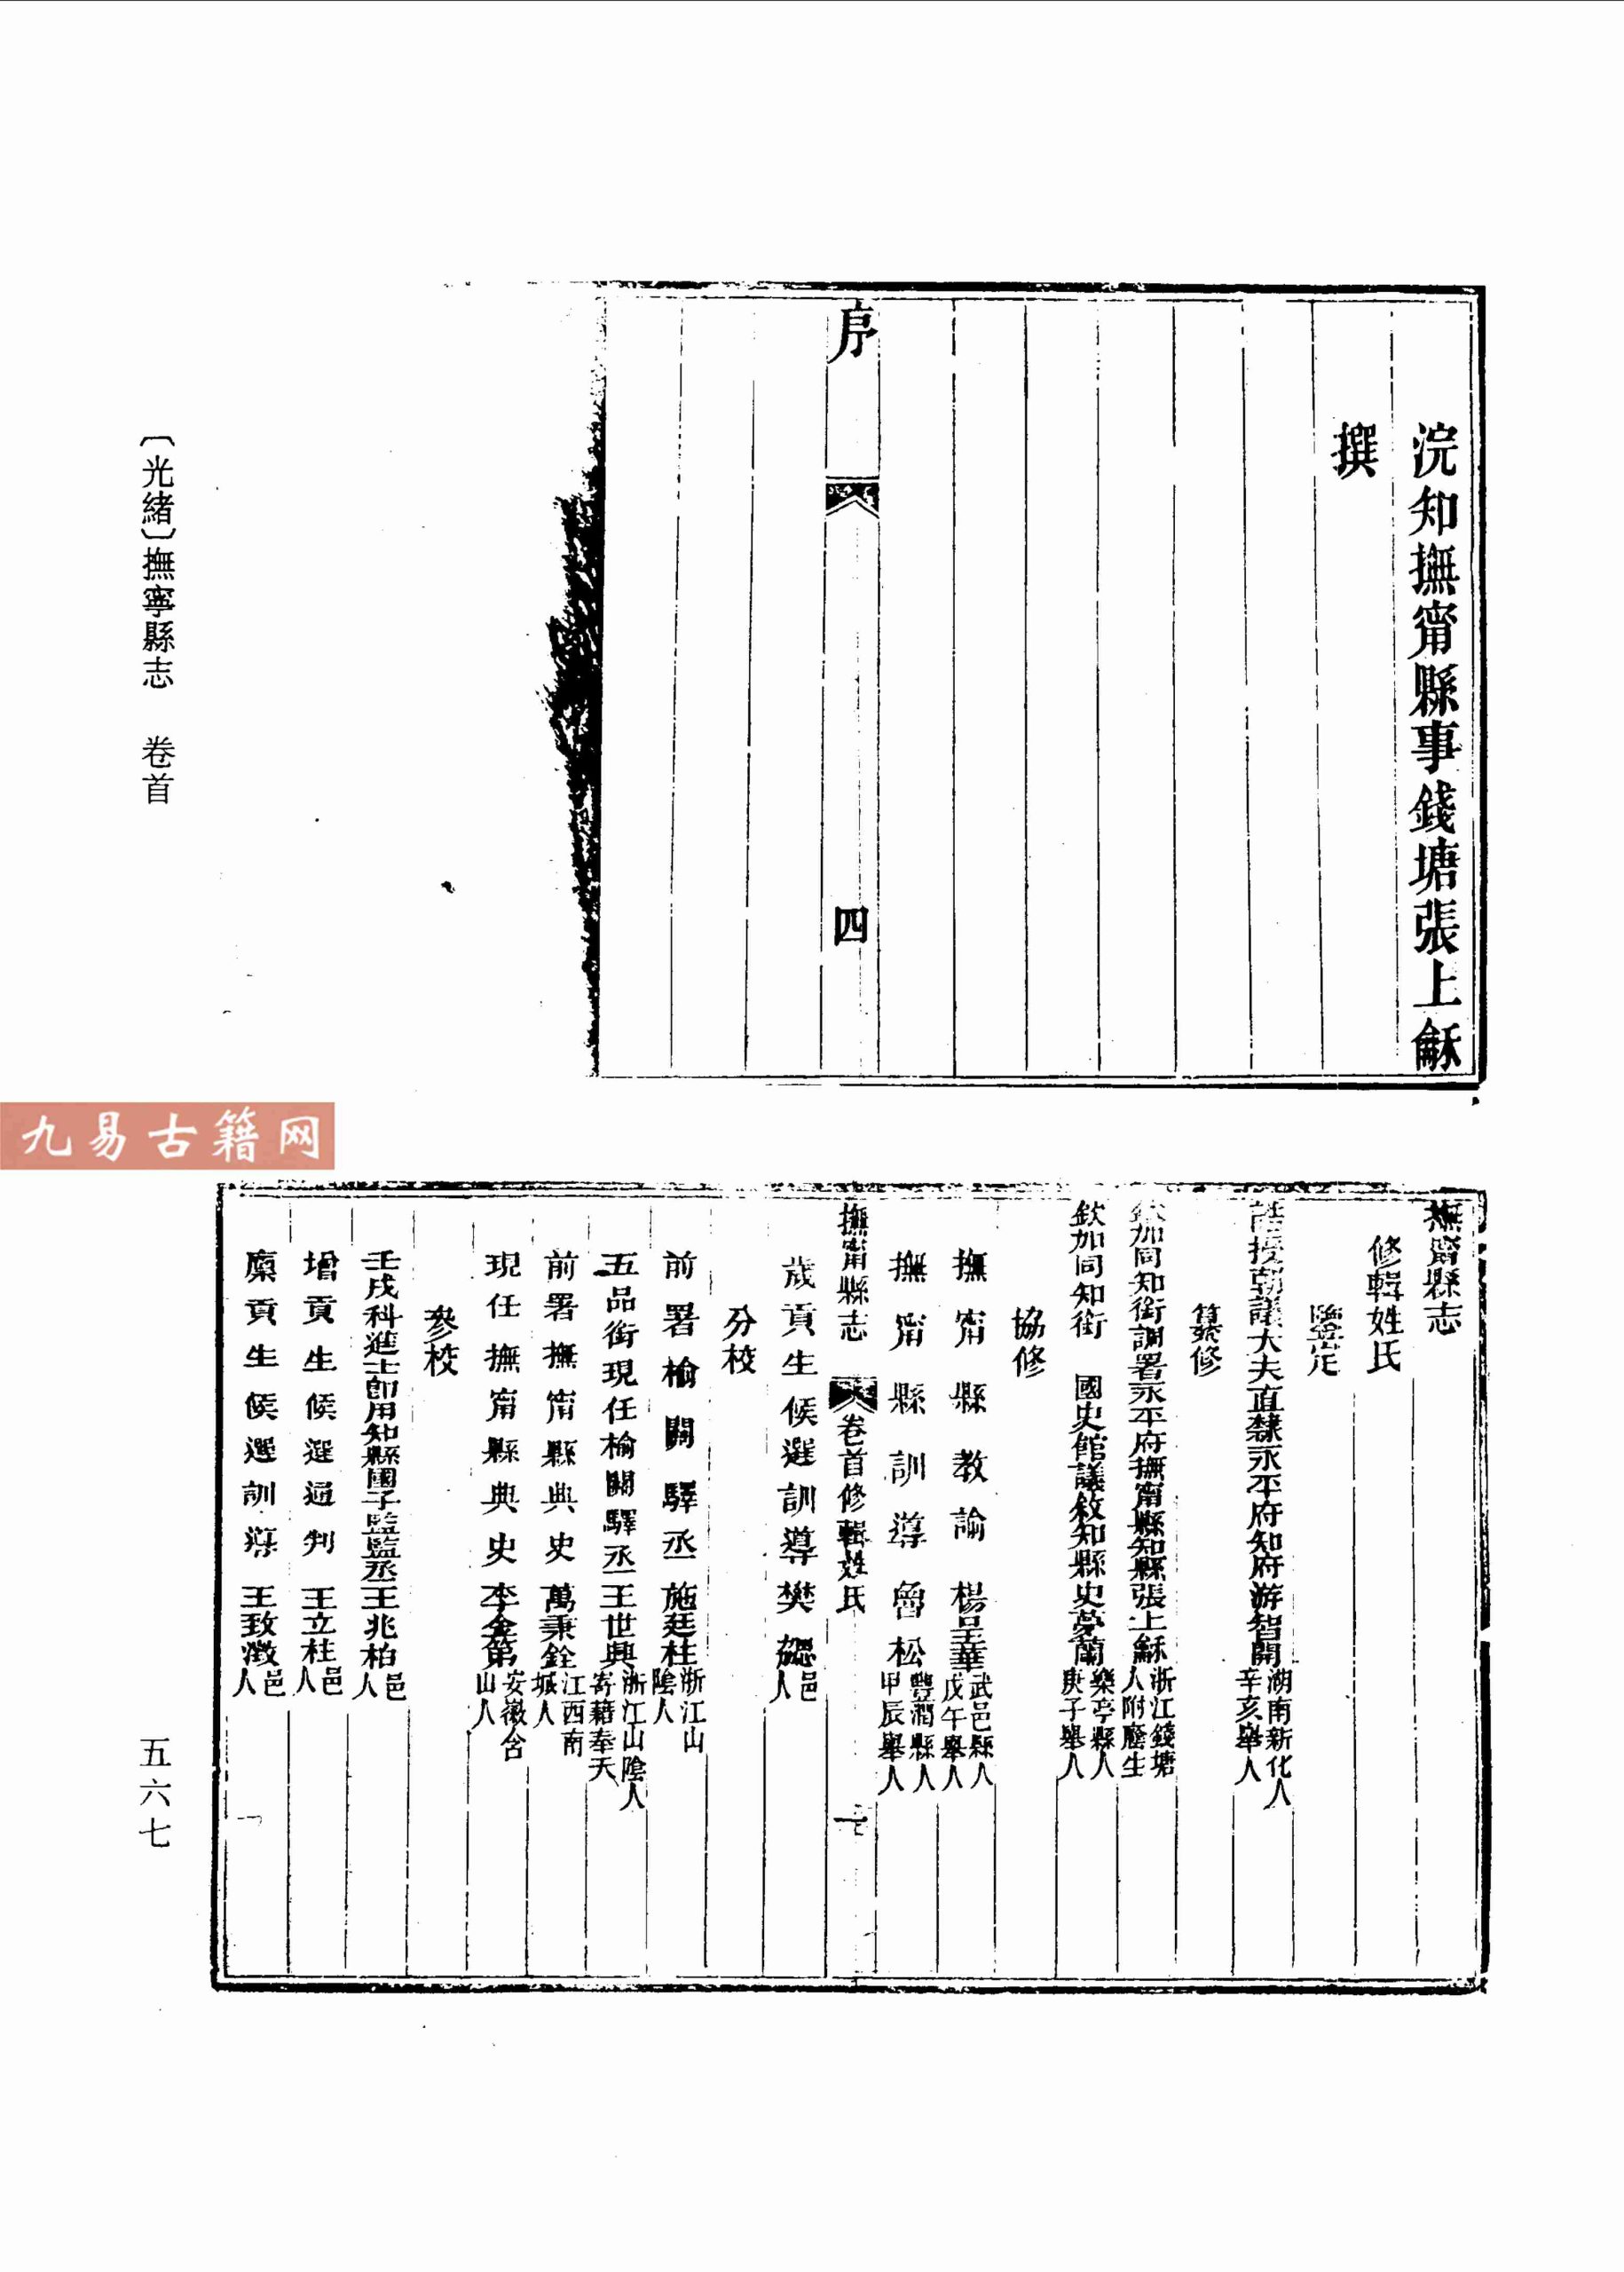 浣知撫甯縣事錢塘張上龢
撰
序
四
撫甯縣志
修輯姓氏
鑒定
誥授朝議大夫直隸永平府知府游智開 湖南新化人辛亥舉人
纂修
欽加同知銜調署永平府撫甯縣知縣張上龢 浙江錢塘人附廩生
欽加同知銜 國史館議敘知縣史夢蘭 樂亭縣人庚子舉人
協修
撫甯縣教諭楊呈華 武邑縣人戊午舉人
撫甯縣訓導魯松 豐潤縣人甲辰舉人
撫甯縣志 卷首修輯姓氏 一
歲貢生候選訓導樊 邑人
分校
前署榆關驛丞施廷柱 浙江山陰人
五品銜現任榆關驛丞王世興 浙江山陰人寄籍奉天
前署撫甯縣典史萬秉銓 江西南城人
現任撫甯縣典史李金第 安徽含山人
參校
壬戌科進士即用知縣國子監監丞王兆柏 邑人
增貢生候選通判王立柱 邑人
廩貢生候選訓導王致澂 邑人
〔光緒〕撫寧縣志 卷首
五六七
九易古籍网